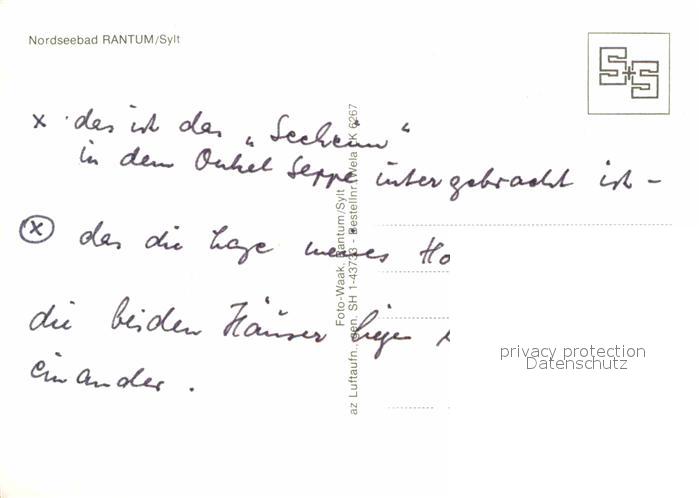 Nordseebad RANTUM/Sylt
S+S
x das ist das „Seeheim“
in dem Onkel Seppe untergebracht ist –
ⓧ das die Lage meines Ho
die beiden Häuser liegen
einander.
Foto-Waak, Rantum/Sylt
az Luftaufn., gen. SH 1-43733 - Bestellnr. Wela LK 6267
privacy protection
Datenschutz